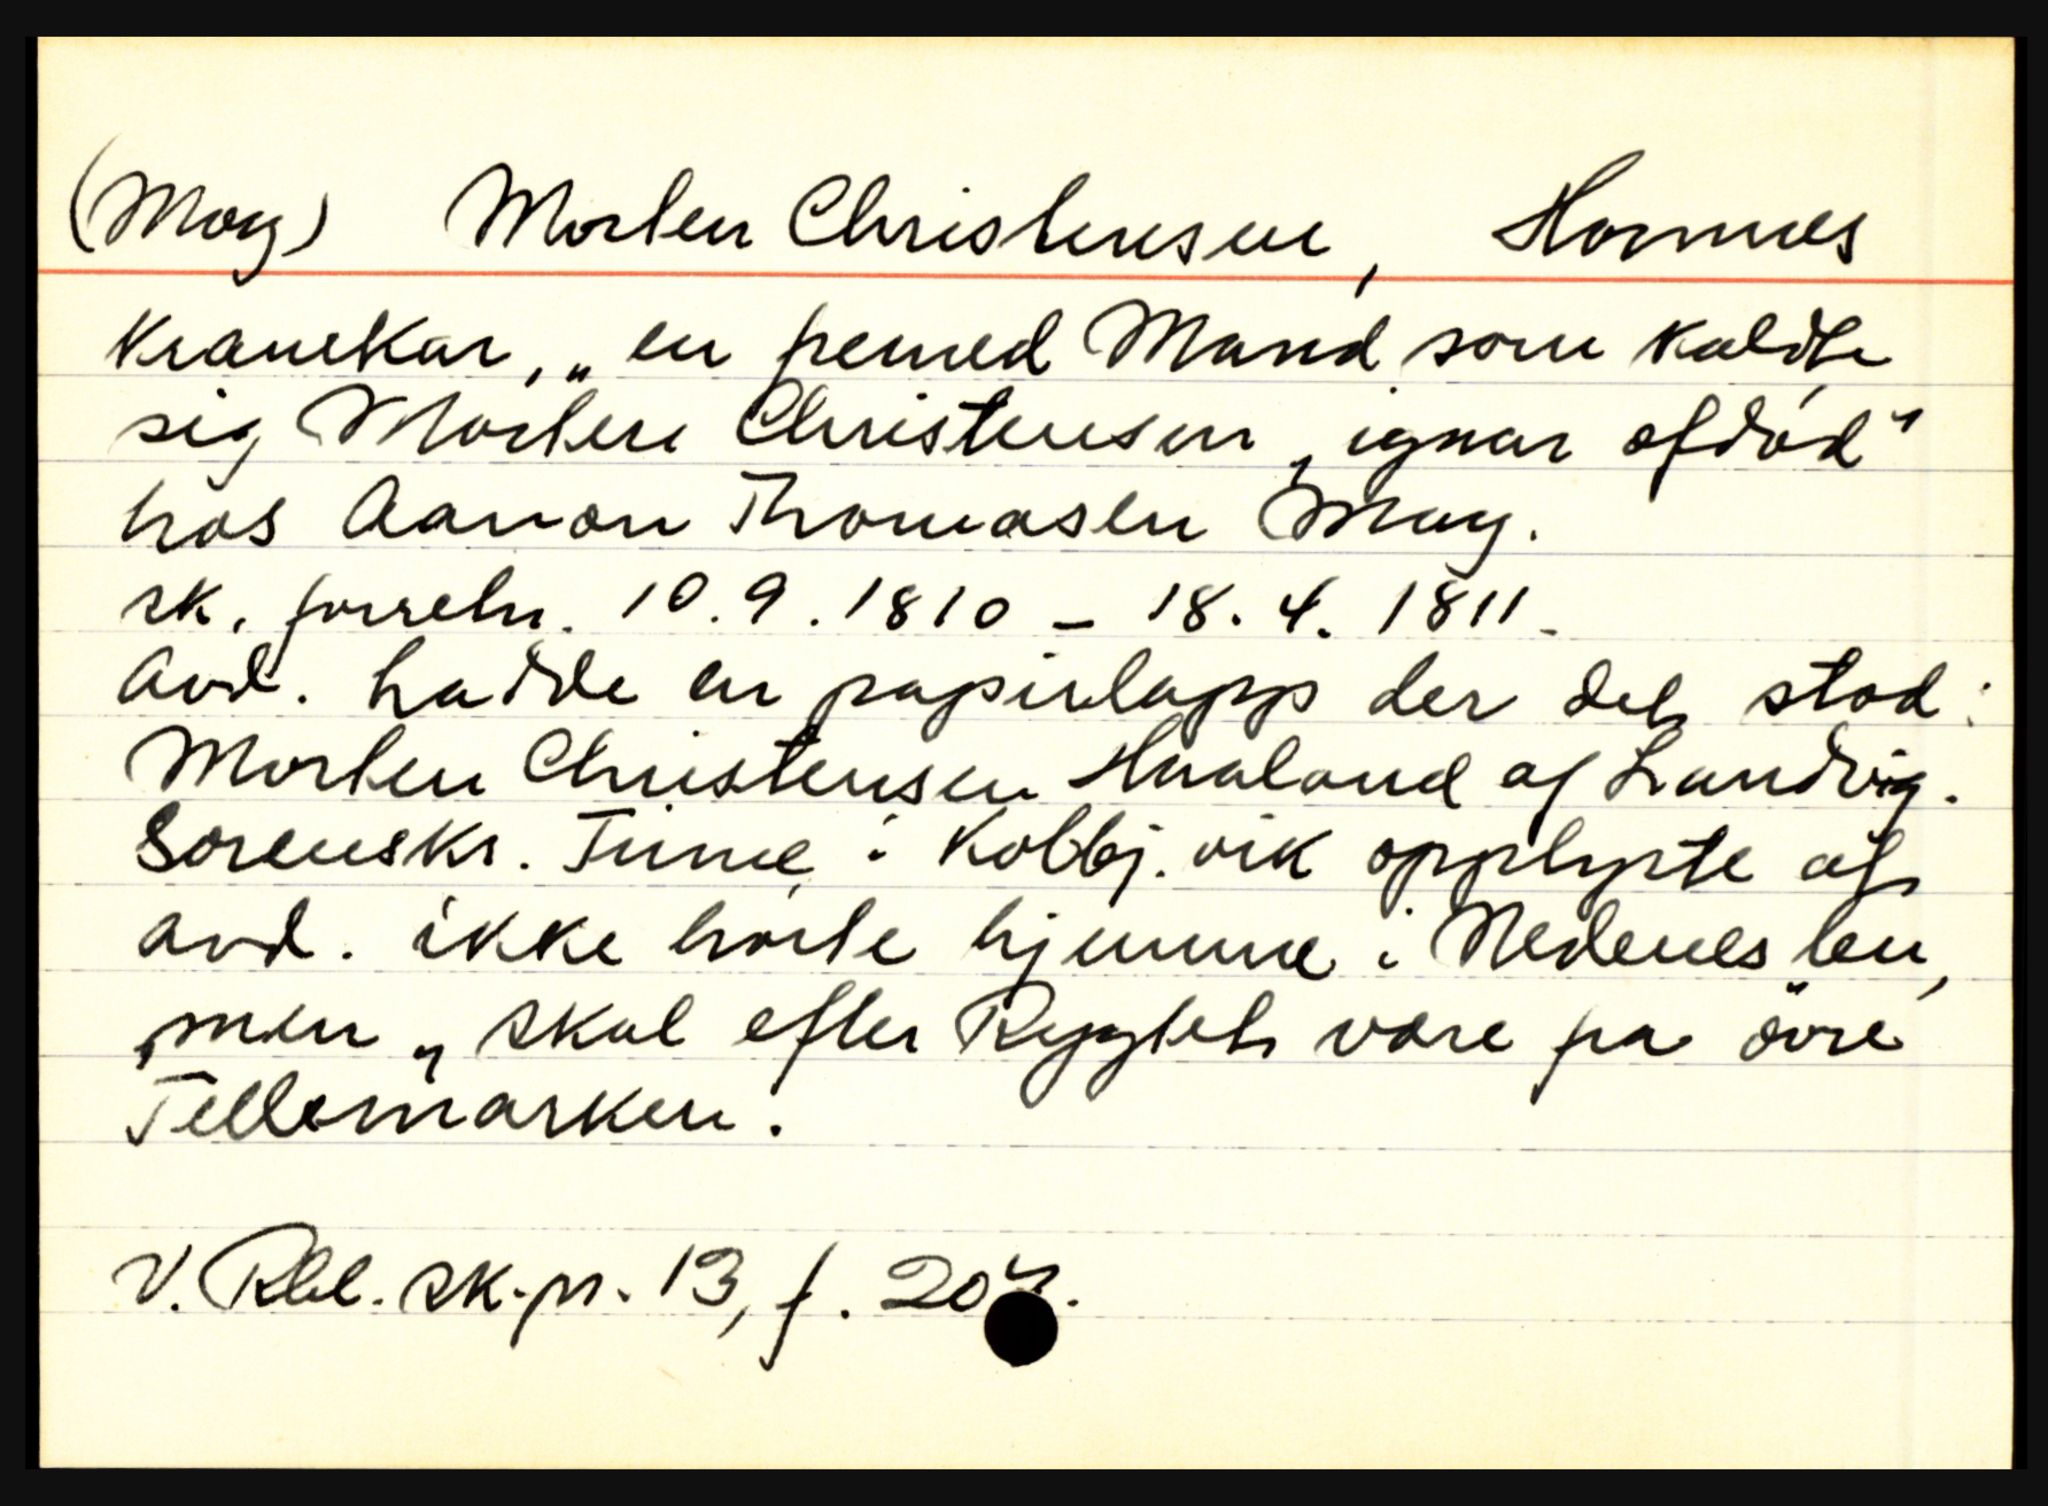 (Moy) Morten Christensen, Hornnes
Kramkar, „en fremed Mand som kaldte
sig Morten Christensen, ignar afdöd“
hos Aanon Thomasen Moy.
sk. forretn. 10.9.1810 – 18.4.1811.
Avd. hadde en papirlapp der det stod:
Morten Christensen Haaland af Landvig.
Sorenskr. Finne i Kolbj.vik opplyste at
avd. ikke hörte hjemme i Nedenes len,
men „skal efter Rygtet være fra övre
Tellemarken.“
V. Rbl. sk.pr. 13, f.